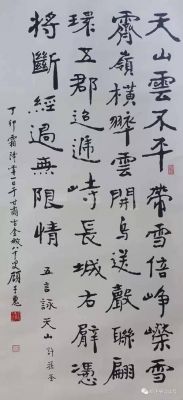 天山雲不平帶雪倍崢嶸雪
霽嶺橫翠雲開鳥送聲聯翩
環五郡迢遞峙長城右臂憑
將斷經過無限情
五言詠天山 許孫荃
丁卯霜降 日于甘肅古金城八十叟顧子惠